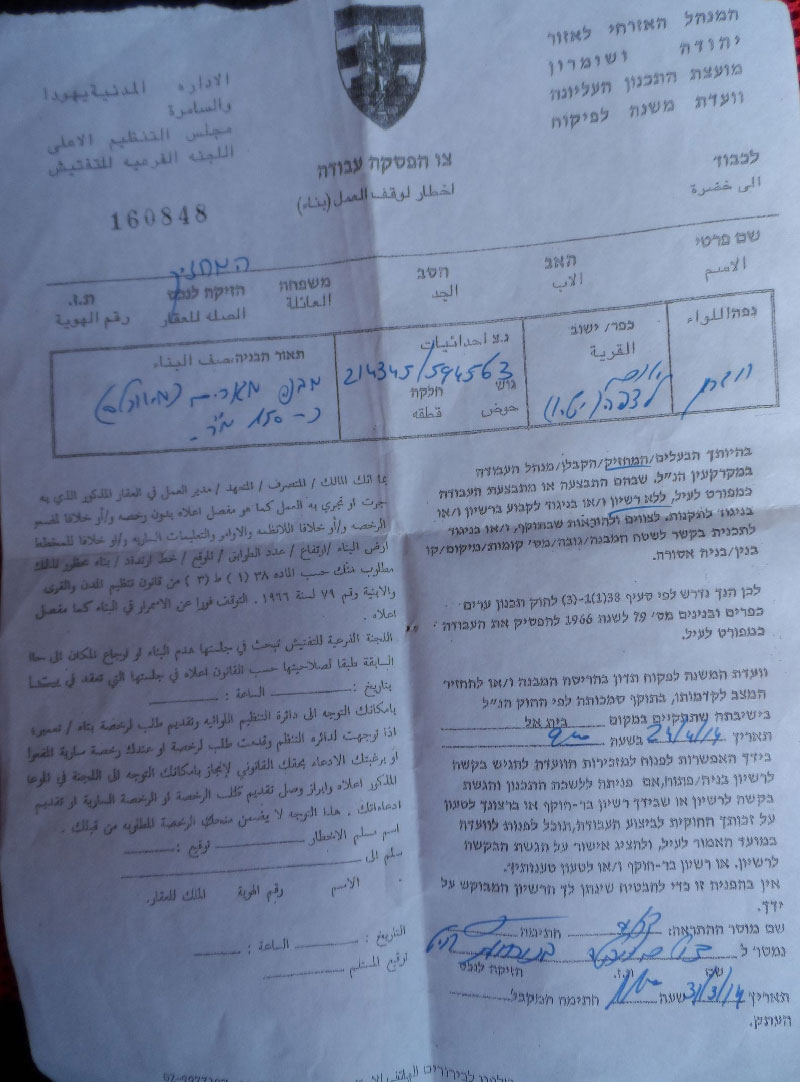 המנהל האזרחי לאזור
יהודה ושומרון
מועצת התכנון העליונה
וועדת משנה לפיקוח
الاداره المدنية يهودا
والسامرة
مجلس التنظيم الاعلى
اللجنه الفرعيه للتفتيش
צו הפסקת עבודה
اخطار لوقف العمل (بناء)
160848
לכבוד
الى حضرة
המחזיק
שם פרטי האב הסב משפחה הזיקה לנכס ת.ז.
الاسم الاب الجد العائلة الصله للعقار رقم الهوية
נפה/اللواء כפר/ישוב נ.צ احداثيات תאור הבניה/وصف البناء
القرية
214345/594563
גוש חלקה
حوض قطعه
כ- 150 מ"ר
בהיותך הבעלים/המחזיק/הקבלן/מנהל העבודה
במקרקעין הנ"ל. שבהם התבצעה או מתבצעת העבודה
כמפורט לעיל, ללא רשיון ו/או בניגוד לקבוע ברשיון ו/או
בניגוד לתקנות. לצווים ולהוראות שבתוקף, ו/או בניגוד
לתכנית בקשר לשטח המבנה/גובה/מס' קומות/מיקום/קו
בנין/בניה אסורה.
לכן הנך נדרש לפי סעיף 38(1)-(3) לחוק תכנון ערים
כפרים ובנינים מס' 79 לשנת 1966 להפסיק את העבודה
כמפורט לעיל.
וועדת המשנה לפקוח תדון בהריסת המבנה ו/או להחזיר
המצב לקדמותו, בתוקף סמכותה לפי החוק הנ"ל
בישיבתה שתתקיים במקום בית אל
תאריך 24/4/14 בשעה
בידך האפשרות לפנות למזכירות הוועדה להגיש בקשה
לרשיון בניה/פתוח, אם פניתה ללשכת התכנון והגשת
בקשה לרשיון או שבידך רשיון בר-תוקף או ברצונך לטעון
על זכותך החוקית לביצוע העבודה, תוכל לפנות לוועדה
במועד האמור לעיל, ולהציג אישור על הגשת הבקשה
לרשיון. או רשיון בר-תוקף ו/או לטעון טענותיך.
אין בהפניה זו כדי להבטיח שינתן לך הרשיון המבוקש על
ידך.
שם מוסר ההתראה: חתימה
נמסר ל
שם ת.ז. הזיקה לנכס
תאריך 31/3/14 שעה חתימת המקבל
העתק.
بما انك المالك / المتصرف / المتعهد / مدير العمل في العقار المذكور الذي به
جرت او تجري به العمل كما هو مفصل اعلاه بدون رخصه و/او خلافا
الرخصه و/او خلافا للانظمه والاوامر والتعليمات الساريه و/او خلافا للمخطط
ارض البناء /ارتفاع / عدد الطوابق / الموقع / خط ارتداد / بناء محظور لذلك
مطلوب منك حسب الماده ٣٨ (١) ط (٣) من قانون تنظيم المدن والقرى
والابنية رقم ٧٩ لسنة ١٩٦٦ . التوقف فورا عن الاستمرار في البناء كما مفصل
اعلاه .
اللجنة الفرعية للتفتيش تبحث في جلستها هدم البناء او ارجاع المكان الى حالته
السابقة طبقا لصلاحيتها حسب القانون اعلاه في جلستها التي تعقد في
بتاريخ : الساعة :
بامكانك التوجه الى دائرة التنظيم اللوائيه وتقديم طلب لرخصة بناء / تعمير؛
اذا توجهت لدائره التنظم وقدمت طلب لرخصة او عندك رخصة سارية المفعول
او برغبتك الادعاء بحقك القانوني لإنجاز بامكانك التوجه الى اللجنة في الموعد
المذكور اعلاه وابراز وصل تقديم طلب الرخصة او الرخصة السارية او تقديم
ادعاءاتك . هذا التوجه لا يضمن منحك الرخصة المطلوبه من قبلك .
اسم مسلم الاخطار توقيع :
سلم الى
الاسم رقم الهوية المالك للعقار.
التاريخ : الساعة :
توقيع المستلم